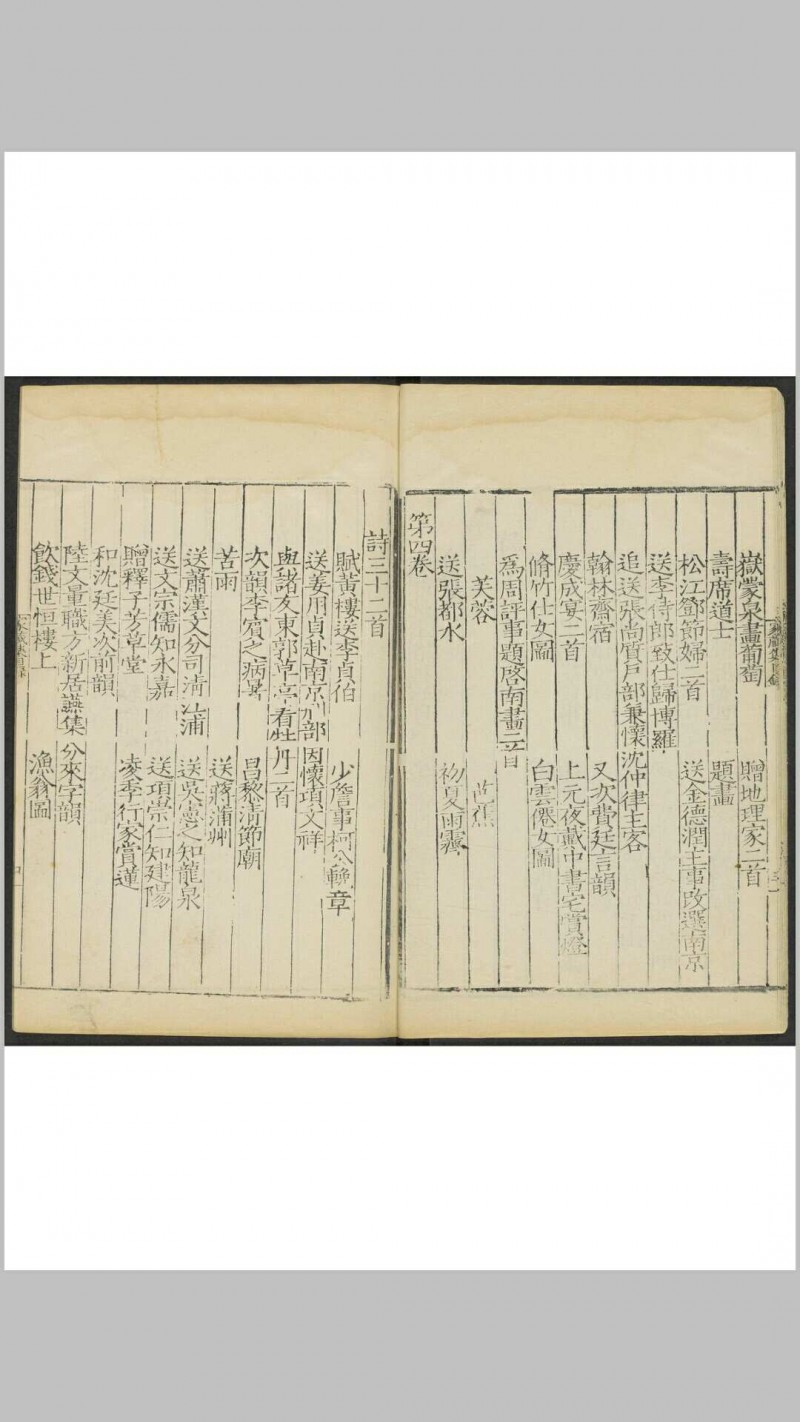 嶽蒙泉畫葡萄　贈地理家二首
壽席道士　題畫
松江鄧節婦二首　送金德潤主事改選南京
送李侍郎致仕歸博羅
追送張尚質戶部兼懷沈仲律主客
翰林齋宿　又次費廷言韻
慶成宴二首　上元夜戴中書宅賞燈
脩竹仕女圖　白雲僊女圖
爲周評事題啓南畫二首
芙蓉　芭蕉
送張都水　初夏雨霽
第四卷
詩三十二首
賦黃樓送李貞伯　少詹事柯公輓章
送姜用貞赴南京刑部因懷項文祥
與諸友東郭草亭看牡丹二首
次韻李賓之病暑　昌黎清節廟
苦雨　送蔣蒲州
送蕭漢文分司清江浦　送吳憲之知龍泉
送文宗儒知永嘉　送項崇仁知建陽
贈釋子芳草堂　凌季行家賞蓮
和沈廷美次前韻
陸文量職方新居讌集分來字韻
飲錢世恒樓上　漁翁圖